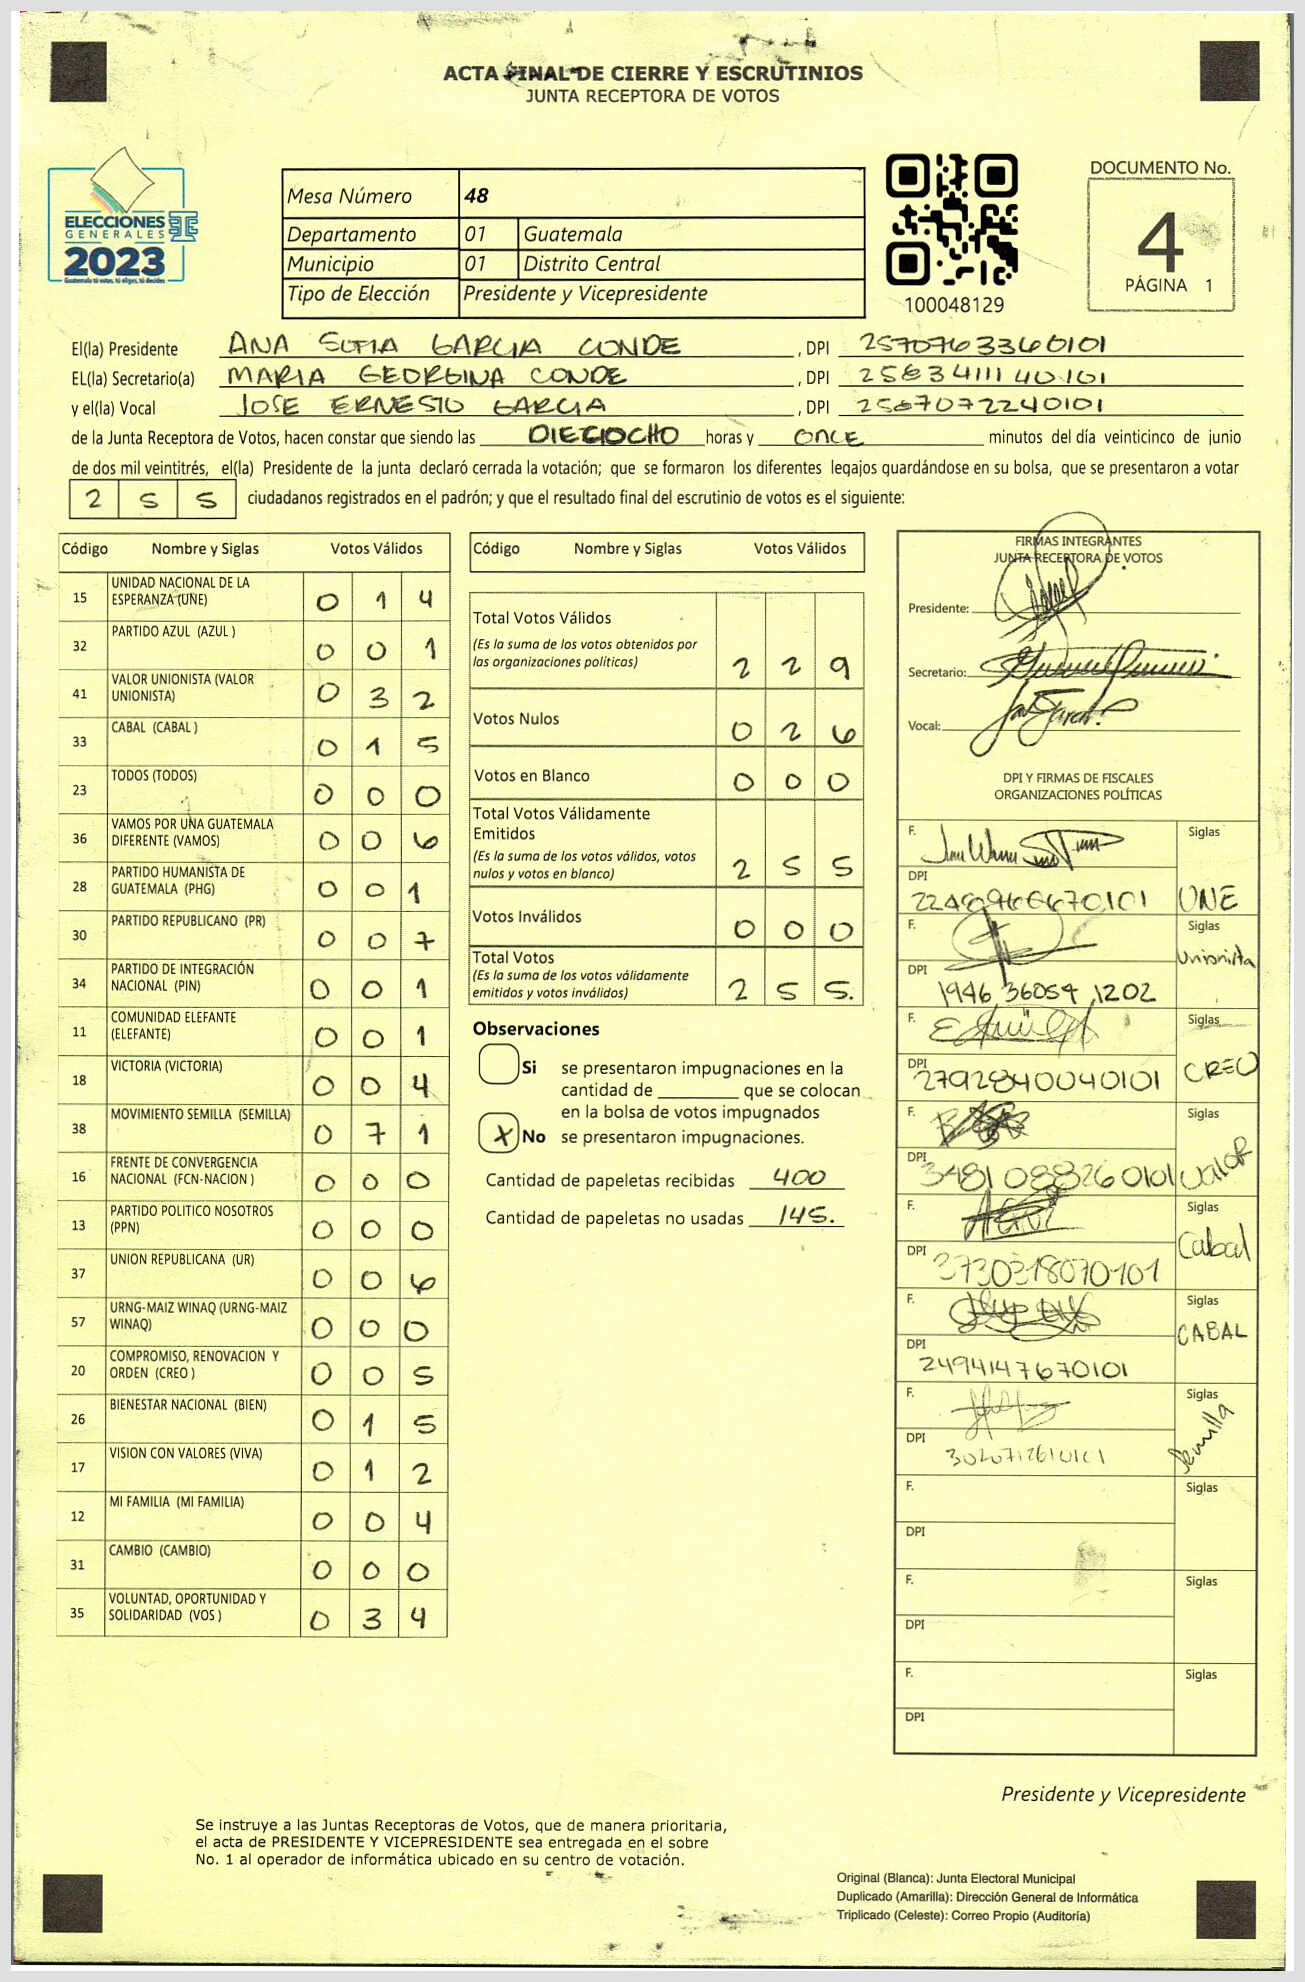 ACTA FINAL DE CIERRE Y ESCRUTINIOS
JUNTA RECEPTORA DE VOTOS
ELECCIONES
GENERALES
2023
Guatemala tú votas, tú eliges, tú decides
Mesa Número 48
Departamento 01 Guatemala
Municipio 01 Distrito Central
Tipo de Elección Presidente y Vicepresidente
100048129
DOCUMENTO No.
4
PÁGINA 1
El(la) Presidente ANA SOFIA GARCIA CONDE , DPI 2570763360101
EL(la) Secretario(a) MARIA GEORGINA CONDE , DPI 2563411140101
y el(la) Vocal JOSE ERNESTO GARCIA , DPI 2567072240101
de la Junta Receptora de Votos, hacen constar que siendo las DIECIOCHO horas y ONCE minutos del día veinticinco de junio
de dos mil veintitrés, el(la) Presidente de la junta declaró cerrada la votación; que se formaron los diferentes legajos guardándose en su bolsa, que se presentaron a votar
2 5 5 ciudadanos registrados en el padrón; y que el resultado final del escrutinio de votos es el siguiente:
Código Nombre y Siglas Votos Válidos
15 UNIDAD NACIONAL DE LA ESPERANZA (UNE) 0 1 4
32 PARTIDO AZUL (AZUL ) 0 0 1
41 VALOR UNIONISTA (VALOR UNIONISTA) 0 3 2
33 CABAL (CABAL ) 0 1 5
23 TODOS (TODOS) 0 0 0
36 VAMOS POR UNA GUATEMALA DIFERENTE (VAMOS) 0 0 6
28 PARTIDO HUMANISTA DE GUATEMALA (PHG) 0 0 1
30 PARTIDO REPUBLICANO (PR) 0 0 7
34 PARTIDO DE INTEGRACIÓN NACIONAL (PIN) 0 0 1
11 COMUNIDAD ELEFANTE (ELEFANTE) 0 0 1
18 VICTORIA (VICTORIA) 0 0 4
38 MOVIMIENTO SEMILLA (SEMILLA) 0 7 1
16 FRENTE DE CONVERGENCIA NACIONAL (FCN-NACION ) 0 0 0
13 PARTIDO POLITICO NOSOTROS (PPN) 0 0 0
37 UNION REPUBLICANA (UR) 0 0 6
57 URNG-MAIZ WINAQ (URNG-MAIZ WINAQ) 0 0 0
20 COMPROMISO, RENOVACION Y ORDEN (CREO ) 0 0 5
26 BIENESTAR NACIONAL (BIEN) 0 1 5
17 VISION CON VALORES (VIVA) 0 1 2
12 MI FAMILIA (MI FAMILIA) 0 0 4
31 CAMBIO (CAMBIO) 0 0 0
35 VOLUNTAD, OPORTUNIDAD Y SOLIDARIDAD (VOS ) 0 3 4
Código Nombre y Siglas Votos Válidos
Total Votos Válidos
(Es la suma de los votos obtenidos por
las organizaciones políticas) 2 2 9
Votos Nulos 0 2 6
Votos en Blanco 0 0 0
Total Votos Válidamente
Emitidos
(Es la suma de los votos válidos, votos
nulos y votos en blanco) 2 5 5
Votos Inválidos 0 0 0
Total Votos
(Es la suma de los votos válidamente
emitidos y votos inválidos) 2 5 5.
Observaciones
Si se presentaron impugnaciones en la
cantidad de ________ que se colocan
en la bolsa de votos impugnados
X No se presentaron impugnaciones.
Cantidad de papeletas recibidas 400
Cantidad de papeletas no usadas 145.
FIRMAS INTEGRANTES
JUNTA RECEPTORA DE VOTOS
Presidente:
Secretario:
Vocal:
DPI Y FIRMAS DE FISCALES
ORGANIZACIONES POLÍTICAS
F. Siglas
DPI UNE
F. Siglas
Unionista
DPI 1946 36054 1202
F. Siglas
DPI 2792840040101 CREO
F. Siglas
DPI 3481088260101 Valor
F. Siglas
DPI 3730318070101 Cabal
F. Siglas
DPI 2494147670101 CABAL
F. Siglas
DPI Semilla
F. Siglas
DPI
F. Siglas
DPI
F. Siglas
DPI
Presidente y Vicepresidente
Se instruye a las Juntas Receptoras de Votos, que de manera prioritaria,
el acta de PRESIDENTE Y VICEPRESIDENTE sea entregada en el sobre
No. 1 al operador de informática ubicado en su centro de votación.
Original (Blanca): Junta Electoral Municipal
Duplicado (Amarilla): Dirección General de Informática
Triplicado (Celeste): Correo Propio (Auditoría)